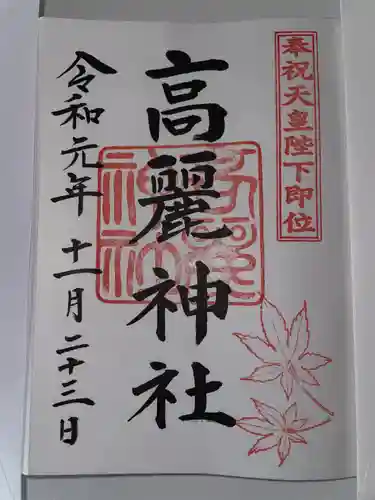 奉祝天皇陛下即位
高麗神社
令和元年 十一月二十三日